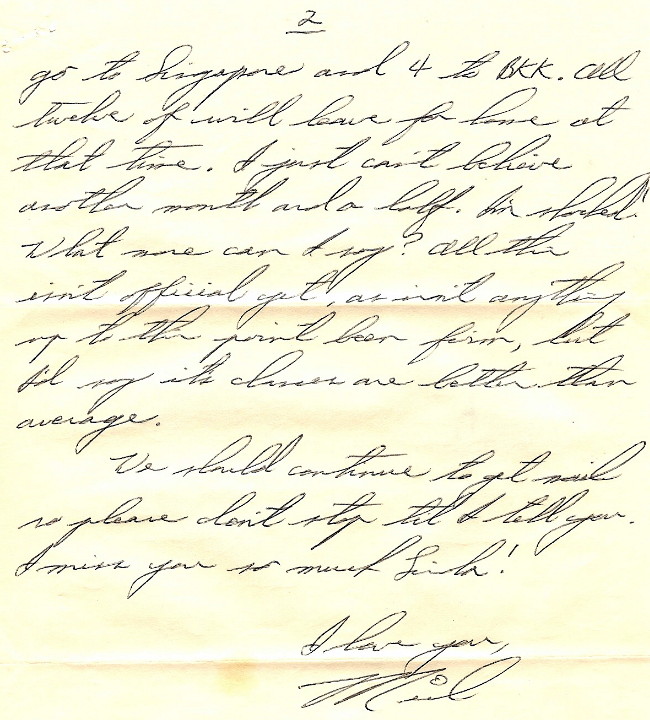 2
go to Singapore and 4 to BKK. All
twelve of will leave for home at
that time. I just can't believe
another month and a half. I'm shocked!
What more can I say? All this
isn't official yet, as isn't anything
up to this point been firm, but
I'd say it's chances are better than
average.
We should continue to get mail
so please don't stop til I tell you.
I miss you so much Linda!
I love you,
Neil